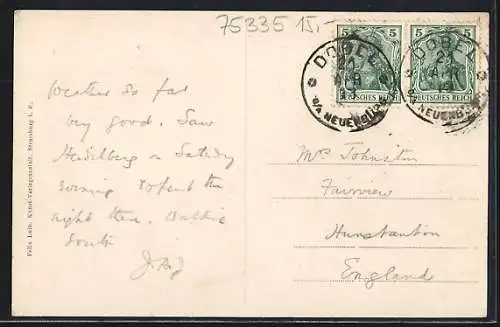 75335 15,-
5 5
DEUTSCHES REICH DEUTSCHES REICH
DOBEL
O/A NEUENBÜRG
DOBEL
O/A NEUENBÜRG
Weather so far
very good. Saw
Heidelberg on Saturday
evening & spent the
night there. Walking
South
Mrs Johnston
Fairview
Hunstanton
England
Felix Luib, Kunst-Verlagsanstalt, Strassburg i. E.